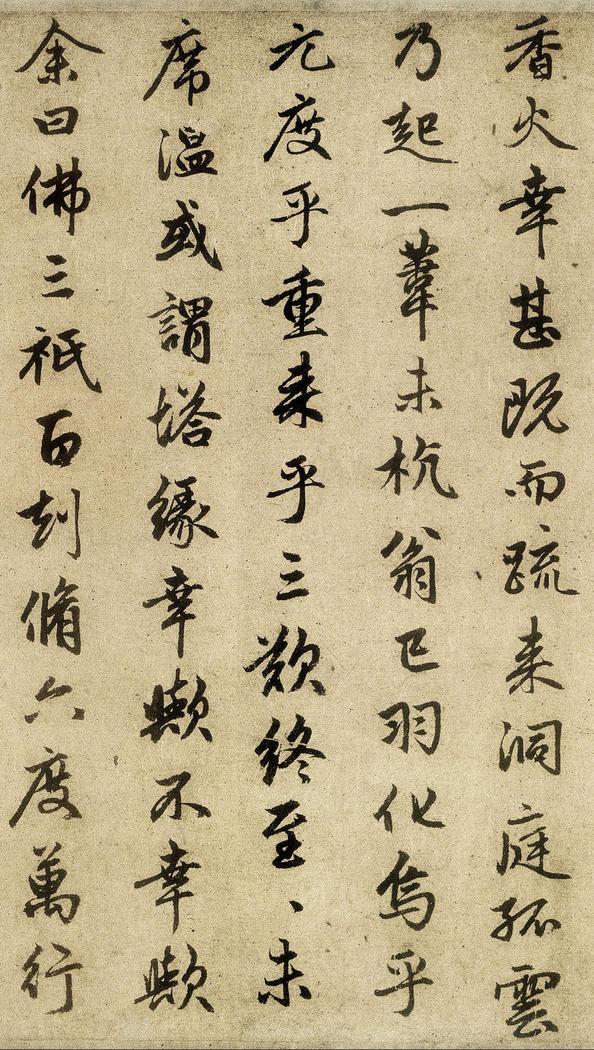 香火幸甚既而疏来洞庭孤雲
乃起一葦未杭翁已羽化烏乎
元度乎重来乎三歎終至〻未
席温或謂塔緣幸歟不幸歟
余曰佛三祇百刦脩六度萬行